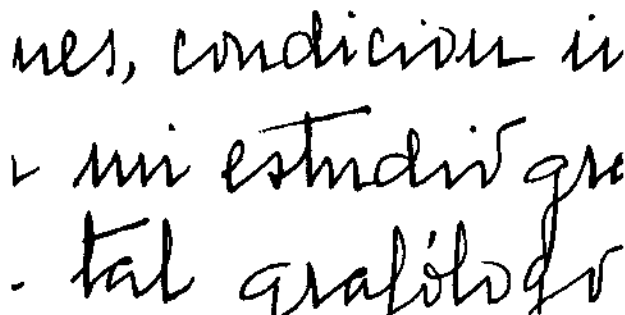 nes, condicion in
mi estudio gra
. tal grafólogo